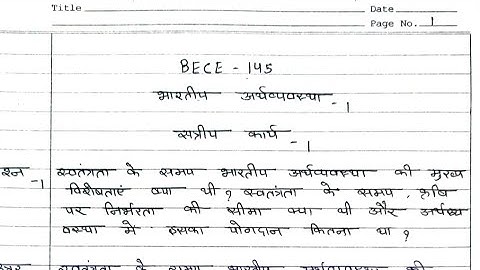 Title Date
Page No. 1
BECE - 145
भारतीय अर्थव्यवस्था - 1
सत्रीय कार्य - 1
श्न -1 स्वतंत्रता के समय भारतीय अर्थव्यवस्था की मुख्य
विशेषताएं क्या थी ? स्वतंत्रता के समय, कृषि
पर निर्भरता की सीमा क्या थी और अर्थव्य
वस्था में इसका योगदान कितना था ?
स्वतंत्रता के समय भारतीय अर्थव्यवस्था की